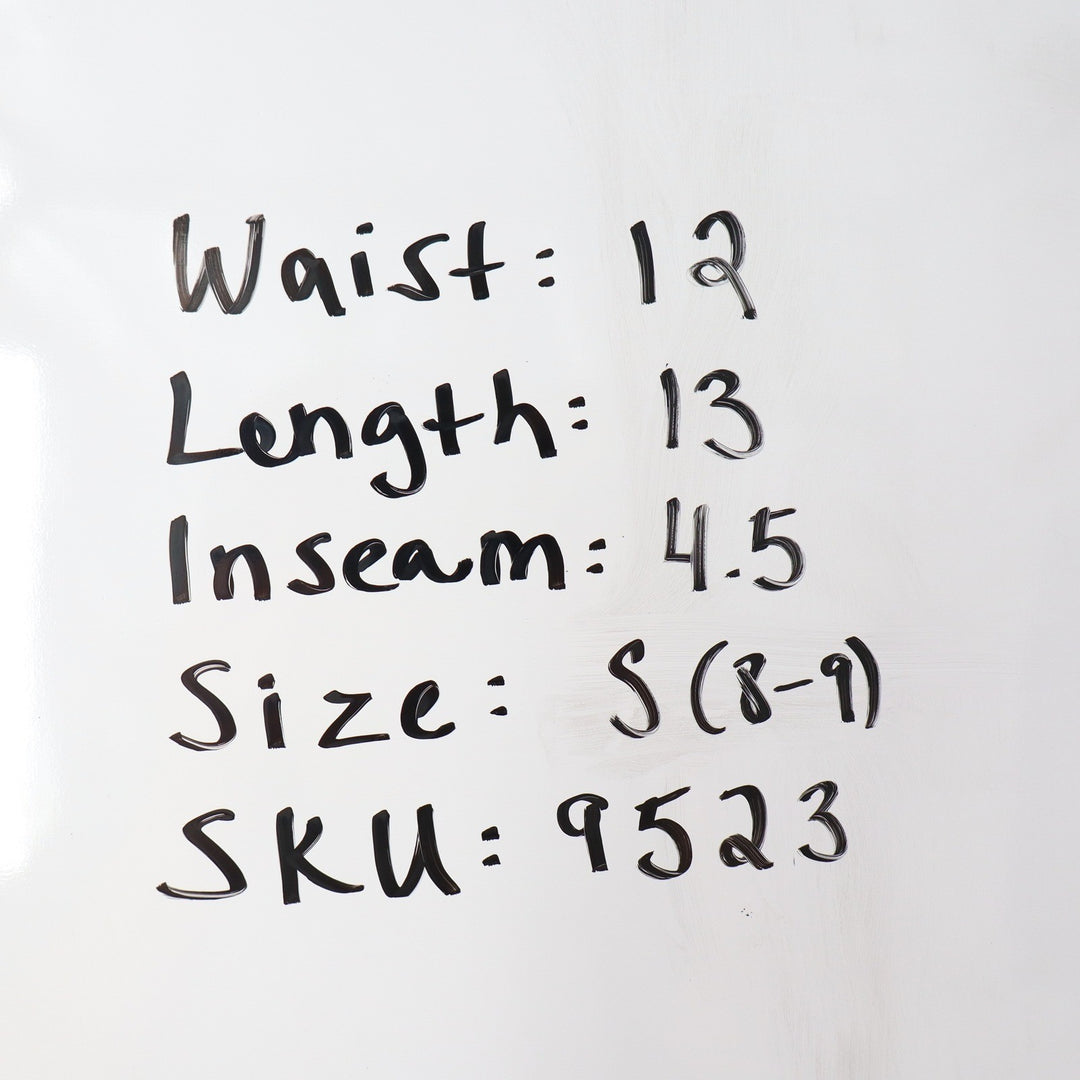 Waist: 12
Length: 13
Inseam: 4.5
Size: S (8-9)
SKU: 9523